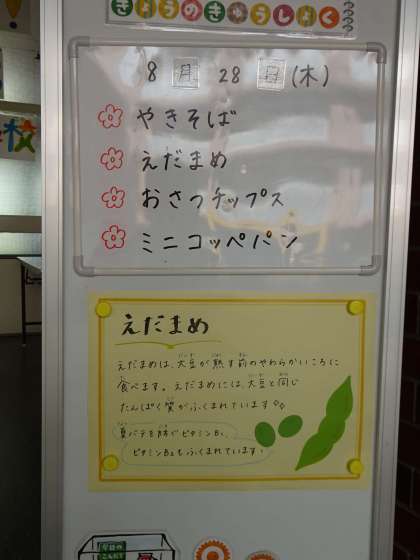 きょうのきゅうしょく
8月 28日(木)
やきそば
えだまめ
おさつチップス
ミニコッペパン
えだまめ
えだまめは、大豆が熟す前のやわらかいころに
食べます。えだまめには、大豆と同じ
たんぱく質がふくまれています。
夏バテを防ぐビタミンB₁、
ビタミンB₂もふくまれています。
校
今日の
こんだて